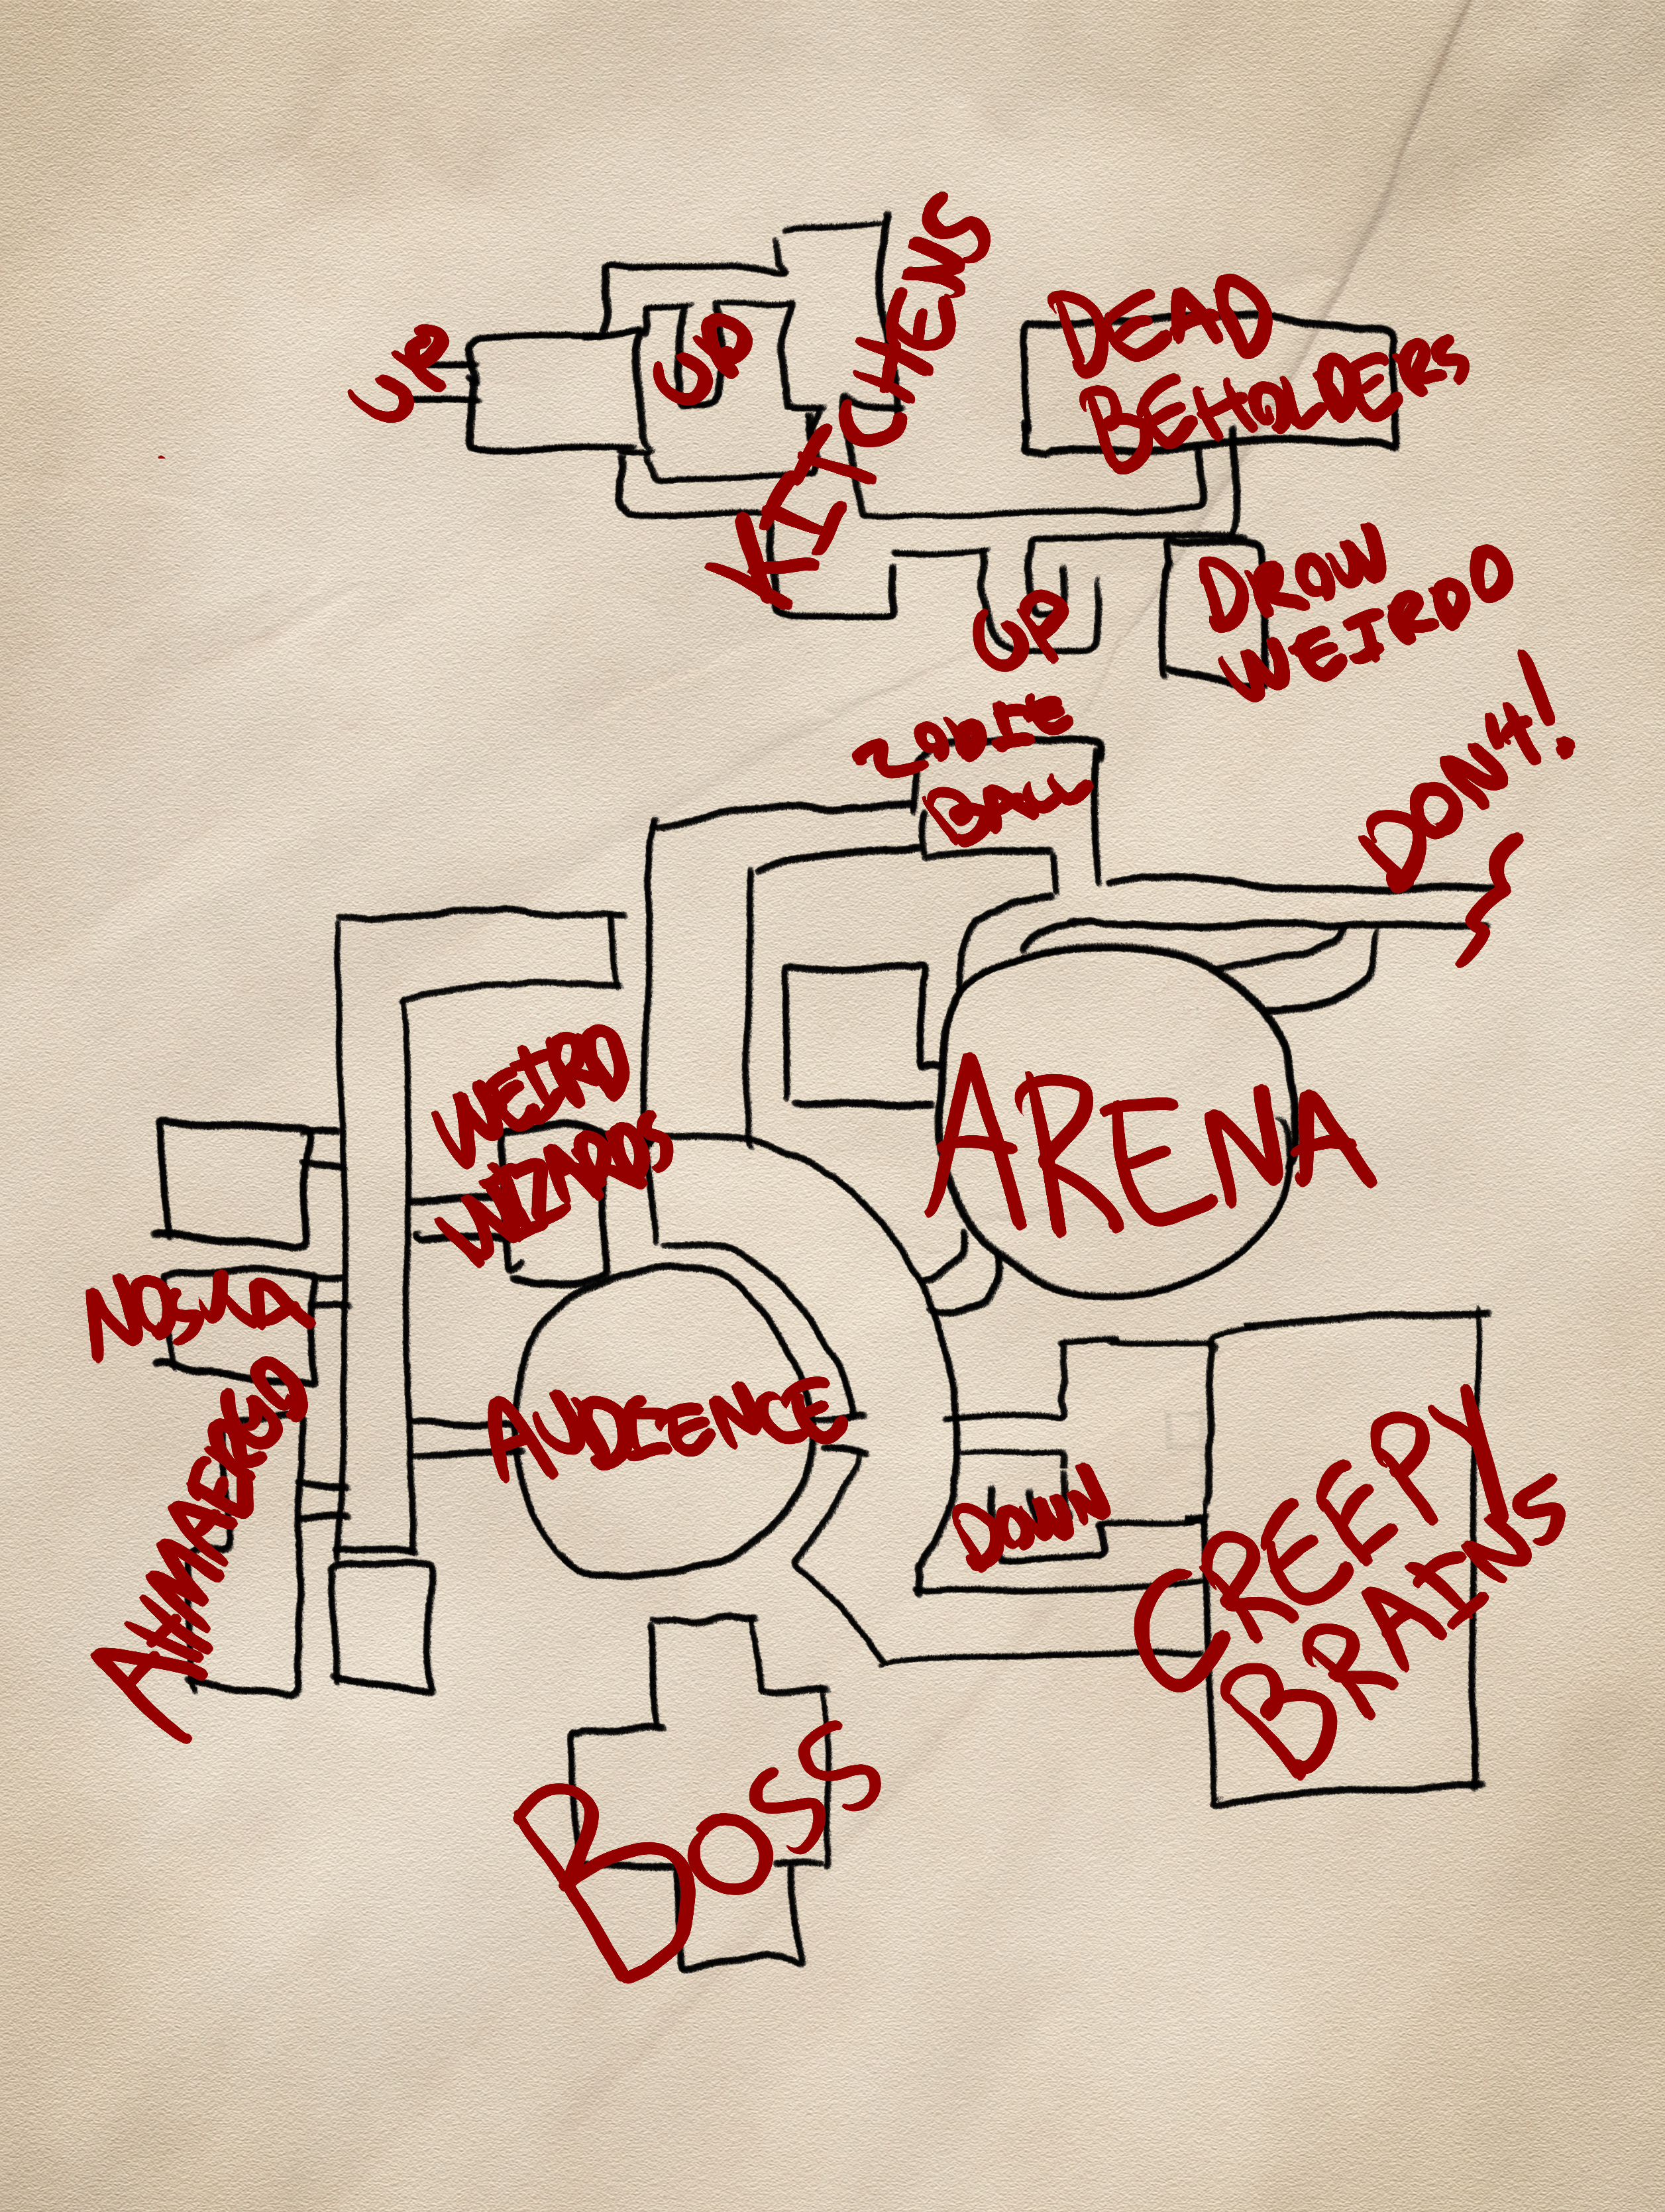 UP
UP
KITCHENS
DEAD
BEHOLDERS
UP
DROW
WEIRDO
BALL
DON'T!
WEIRD
WIZARDS
ARENA
NOSKA
AHMAERGO
AUDIENCE
DOWN
CREEPY
BRAINS
BOSS